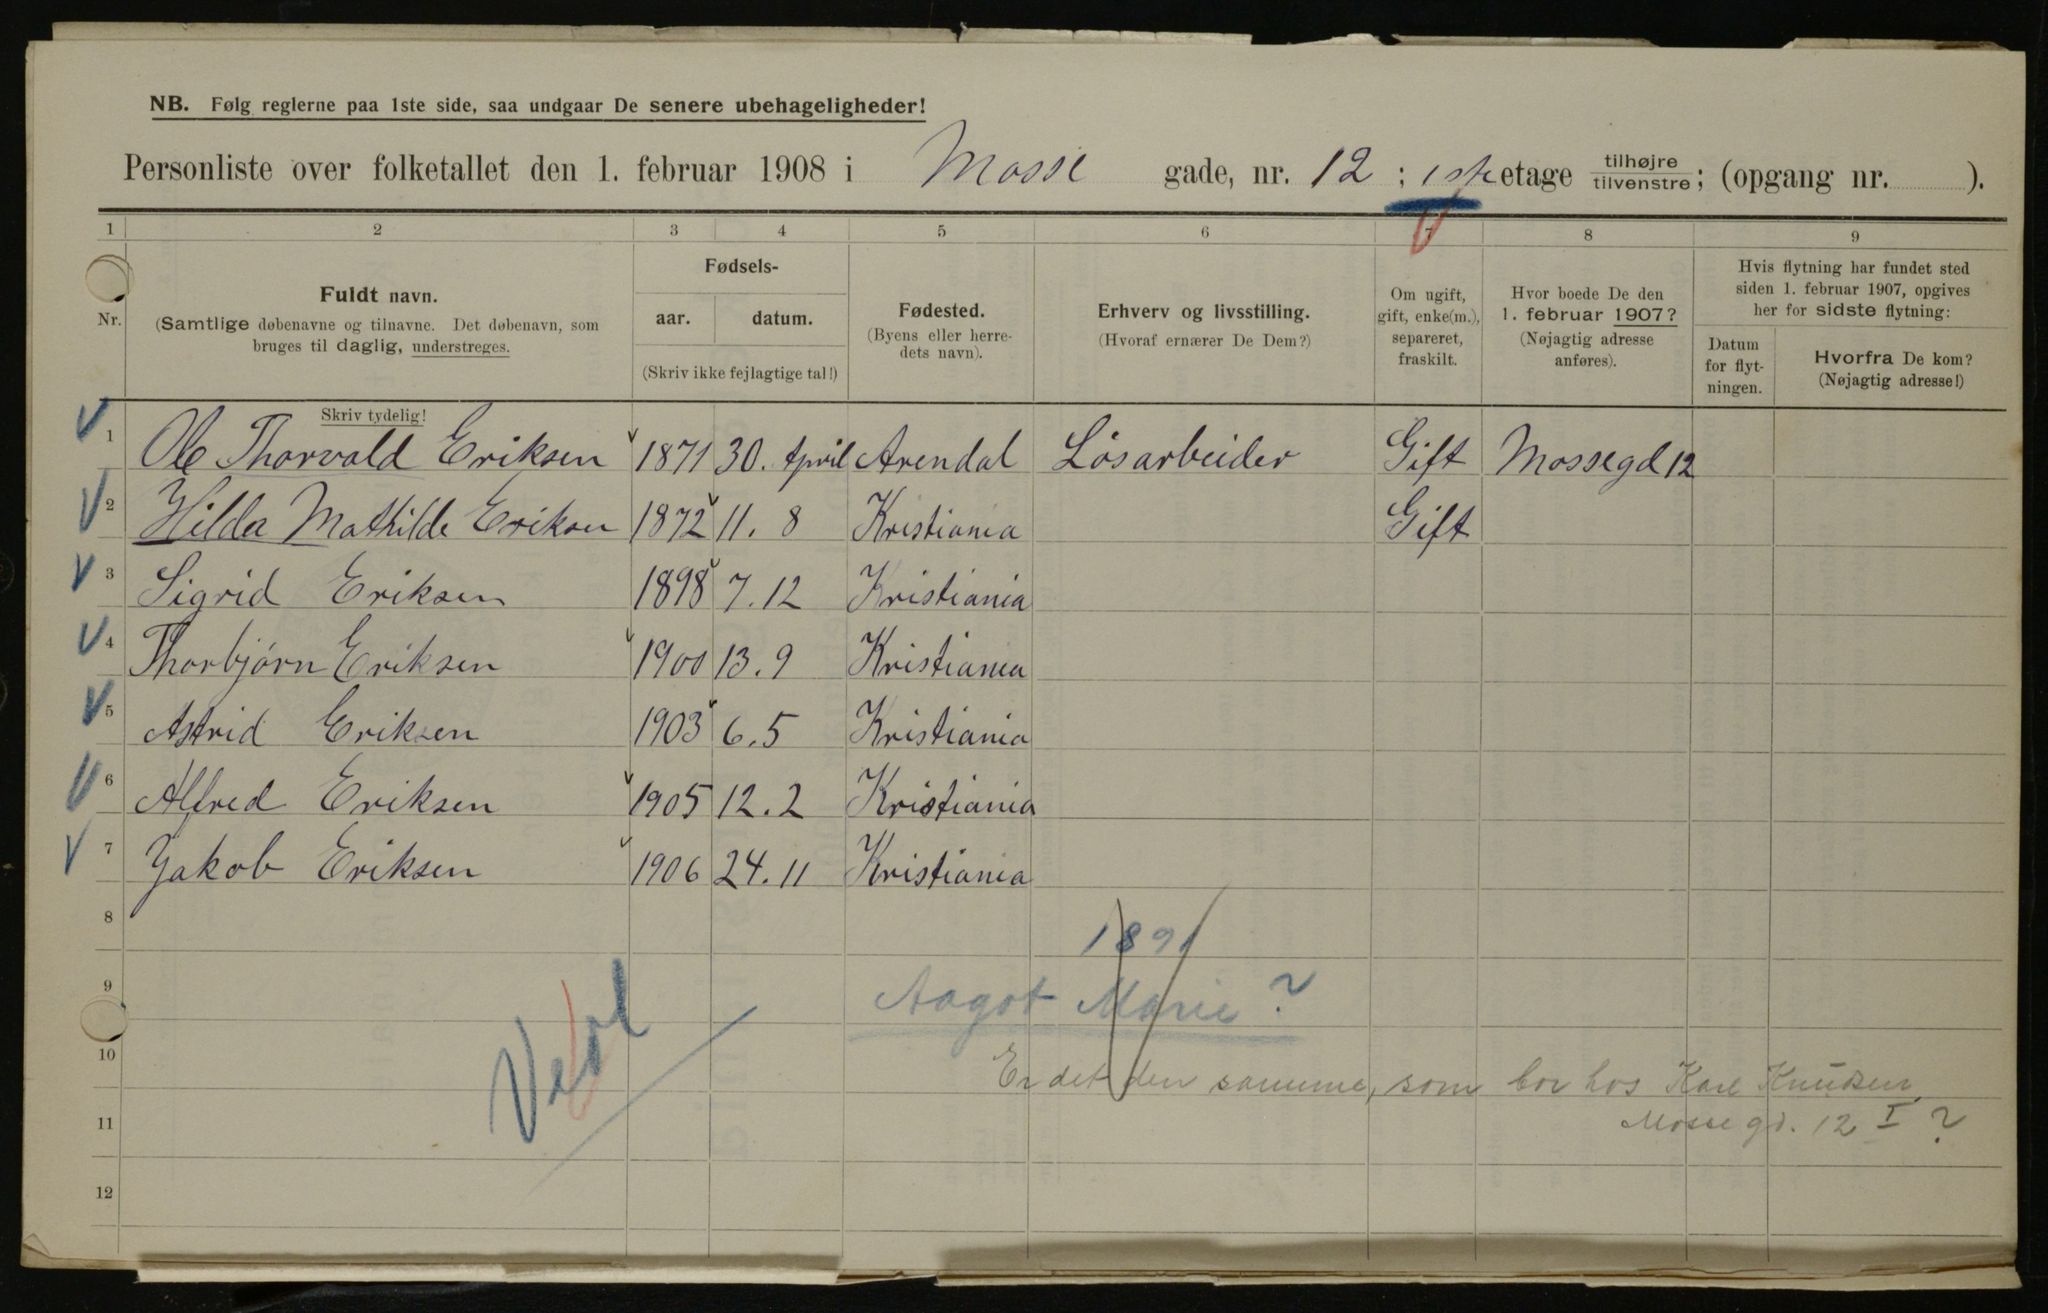 NB. Følg reglerne paa 1ste side, saa undgaar De senere ubehageligheder!
Personliste over folketallet den 1. februar 1908 i Mosse gade, nr. 12 ; 1ste etage tilhøjre/tilvenstre; (opgang nr. ).
1 2 3 4 5 6 7 8 9
Nr.
Fuldt navn.
(Samtlige døbenavne og tilnavne. Det døbenavn, som
bruges til daglig, understreges.
Skriv tydelig!
Fødsels-
aar. datum.
(Skriv ikke fejlagtige tal!)
Fødested.
(Byens eller herre-
dets navn).
Erhverv og livsstilling.
(Hvoraf ernærer De Dem?)
Om ugift,
gift, enke(m.),
separeret,
fraskilt.
Hvor boede De den
1. februar 1907?
(Nøjagtig adresse
anføres).
Hvis flytning har fundet sted
siden 1. februar 1907, opgives
her for sidste flytning:
Datum
for flyt-
ningen.
Hvorfra De kom?
(Nøjagtig adresse!)
1 Ole Thorvald Eriksen 1871 30. April Arendal Løsarbeider Gift Mossegd 12
2 Hilda Mathilde Eriksen 1872 11. 8 Kristiania Gift
3 Sigrid Eriksen 1898 7. 12 Kristiania
4 Thorbjørn Eriksen 1900 13. 9 Kristiania
5 Astrid Eriksen 1903 6. 5 Kristiania
6 Alfred Eriksen 1905 12. 2 Kristiania
7 Jakob Eriksen 1906 24. 11 Kristiania
8
1891
9 Aagot Marie?
10 Er det den samme, som bor hos Karl Knudsen
11 Mosse gd. 12 I ?
12